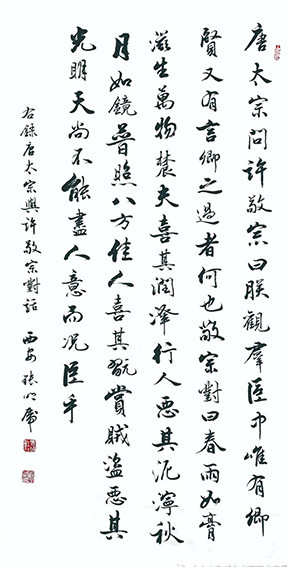 唐太宗問許敬宗曰朕觀羣臣中唯有卿
賢又有言卿之過者何也敬宗對曰春雨如膏
滋生萬物農夫喜其潤澤行人惡其泥濘秋
月如鏡普照八方佳人喜其翫賞賊盜惡其
光明天尚不能盡人意而況臣乎
右錄唐太宗與許敬宗對話 西安張